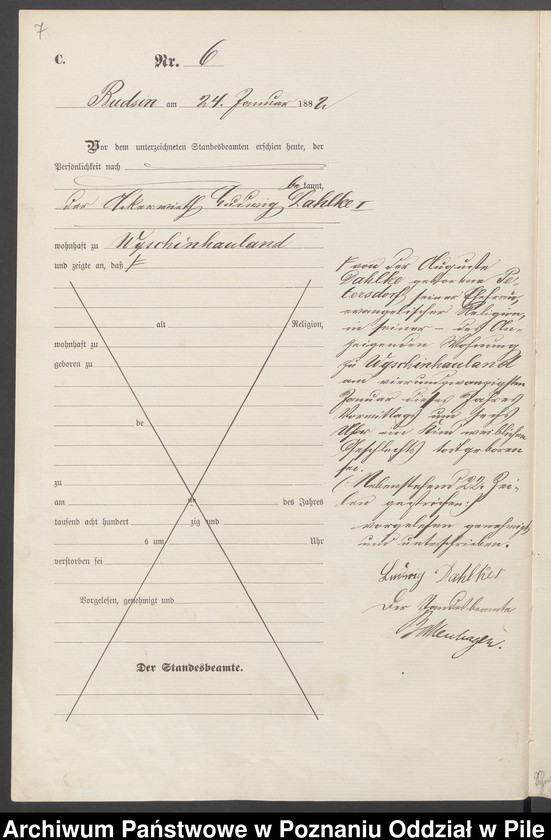 7
C. Nr. 6
Budsin am 24. Januar 1882
Vor dem unterzeichneten Standesbeamten erschien heute, der
Persönlichkeit nach
bekannt,
der Ackerwirth Ludwig Dahlke I
wohnhaft zu Wyschinhauland
und zeigte an, daß
alt Religion,
wohnhaft zu
geboren zu
de
zu
am des Jahres
tausend acht hundert zig und
s um Uhr
verstorben sei
Vorgelesen, genehmigt und
Der Standesbeamte.
von der Auguste
Dahlke geborene Pe-
tersdorf, seiner Ehefrau,
evangelischer Religion,
in seiner – des An-
zeigenden Wohnung
zu Wyschinhauland
am vierundzwanzigsten
Januar dieses Jahres
Vormittags um sechs
Uhr ein Kind weiblichen
Geschlechts todtgeboren
sei.
(: Nebenstehend 22 Zei-
len gestrichen :)
vorgelesen genehmigt
und unterschrieben.
Ludwig Dahlke
Der Standesbeamte
Archiwum Państwowe w Poznaniu Oddział w Pile